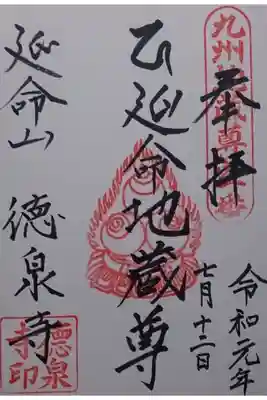 奉拝
令和元年
七月十二日
延命地蔵尊
延命山 徳泉寺
九州
蔵尊
番
徳泉
寺印